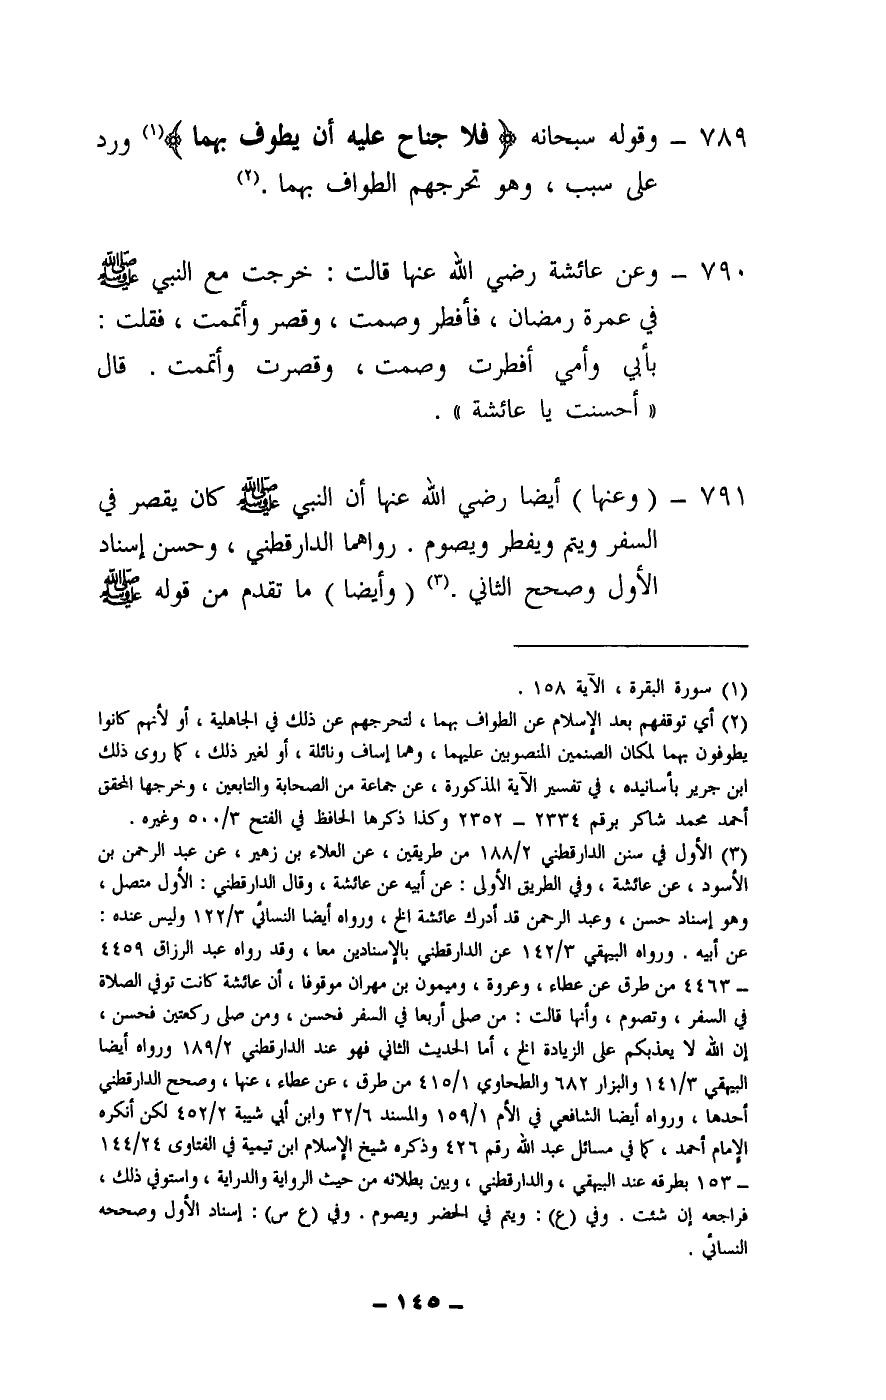 ٧٨٩ ـ وقوله سبحانه ﴿ فلا جناح عليه أن يطوف بهما ﴾(١) ورد
على سبب ، وهو تحرجهم الطواف بهما .(٢)
٧٩٠ ـ وعن عائشة رضي الله عنها قالت : خرجت مع النبي ﷺ
في عمرة رمضان ، فأفطر وصمت ، وقصر وأتممت ، فقلت :
بأبي وأمي أفطرت وصمت ، وقصرت وأتممت . قال
« أحسنت يا عائشة » .
٧٩١ ـ ( وعنها ) أيضا رضي الله عنها أن النبي ﷺ كان يقصر في
السفر ويتم ويفطر ويصوم . رواهما الدارقطني ، وحسن إسناد
الأول وصحح الثاني .(٣) ( وأيضا ) ما تقدم من قوله ﷺ
(١) سورة البقرة ، الآية ١٥٨ .
(٢) أي توقفهم بعد الإسلام عن الطواف بهما ، لتحرجهم عن ذلك في الجاهلية ، أو لأنهم كانوا
يطوفون بهما لمكان الصنمين المنصوبين عليهما ، وهما إساف ونائلة ، أو لغير ذلك ، كما روى ذلك
ابن جرير بأسانيده ، في تفسير الآية المذكورة ، عن جماعة من الصحابة والتابعين ، وخرجها المحقق
أحمد محمد شاكر برقم ٢٣٣٤ ـ ٢٣٥٢ وكذا ذكرها الحافظ في الفتح ٥٠٠/٣ وغيره .
(٣) الأول في سنن الدارقطني ١٨٨/٢ من طريقين ، عن العلاء بن زهير ، عن عبد الرحمن بن
الأسود ، عن عائشة ، وفي الطريق الأولى : عن أبيه عن عائشة ، وقال الدارقطني : الأول متصل ،
وهو إسناد حسن ، وعبد الرحمن قد أدرك عائشة الخ ، ورواه أيضا النسائي ١٢٢/٣ وليس عنده :
عن أبيه . ورواه البيهقي ١٤٢/٣ عن الدارقطني بالإسنادين معا ، وقد رواه عبد الرزاق ٤٤٥٩
ـ ٤٤٦٣ من طرق عن عطاء ، وعروة ، وميمون بن مهران موقوفا ، أن عائشة كانت توفي الصلاة
في السفر ، وتصوم ، وأنها قالت : من صلى أربعا في السفر فحسن ، ومن صلى ركعتين فحسن ،
إن الله لا يعذبكم على الزيادة الخ ، أما الحديث الثاني فهو عند الدارقطني ١٨٩/٢ ورواه أيضا
البيهقي ١٤١/٣ والبزار ٦٨٢ والطحاوي ٤١٥/١ من طرق ، عن عطاء ، عنها ، وصحح الدارقطني
أحدها ، ورواه أيضا الشافعي في الأم ١٥٩/١ والمسند ٣٢/٦ وابن أبي شيبة ٤٥٢/٢ لكن أنكره
الإمام أحمد ، كما في مسائل عبد الله رقم ٤٢٦ وذكره شيخ الإسلام ابن تيمية في الفتاوى ١٤٤/٢٤
ـ ١٥٣ بطرقه عند البيهقي ، والدارقطني ، وبين بطلانه من حيث الرواية والدراية ، واستوفى ذلك ،
فراجعه إن شئت . وفي (ع) : ويتم في الحضر ويصوم . وفي (ع س) : إسناد الأول وصححه
النسائي .
ـ ١٤٥ ـ